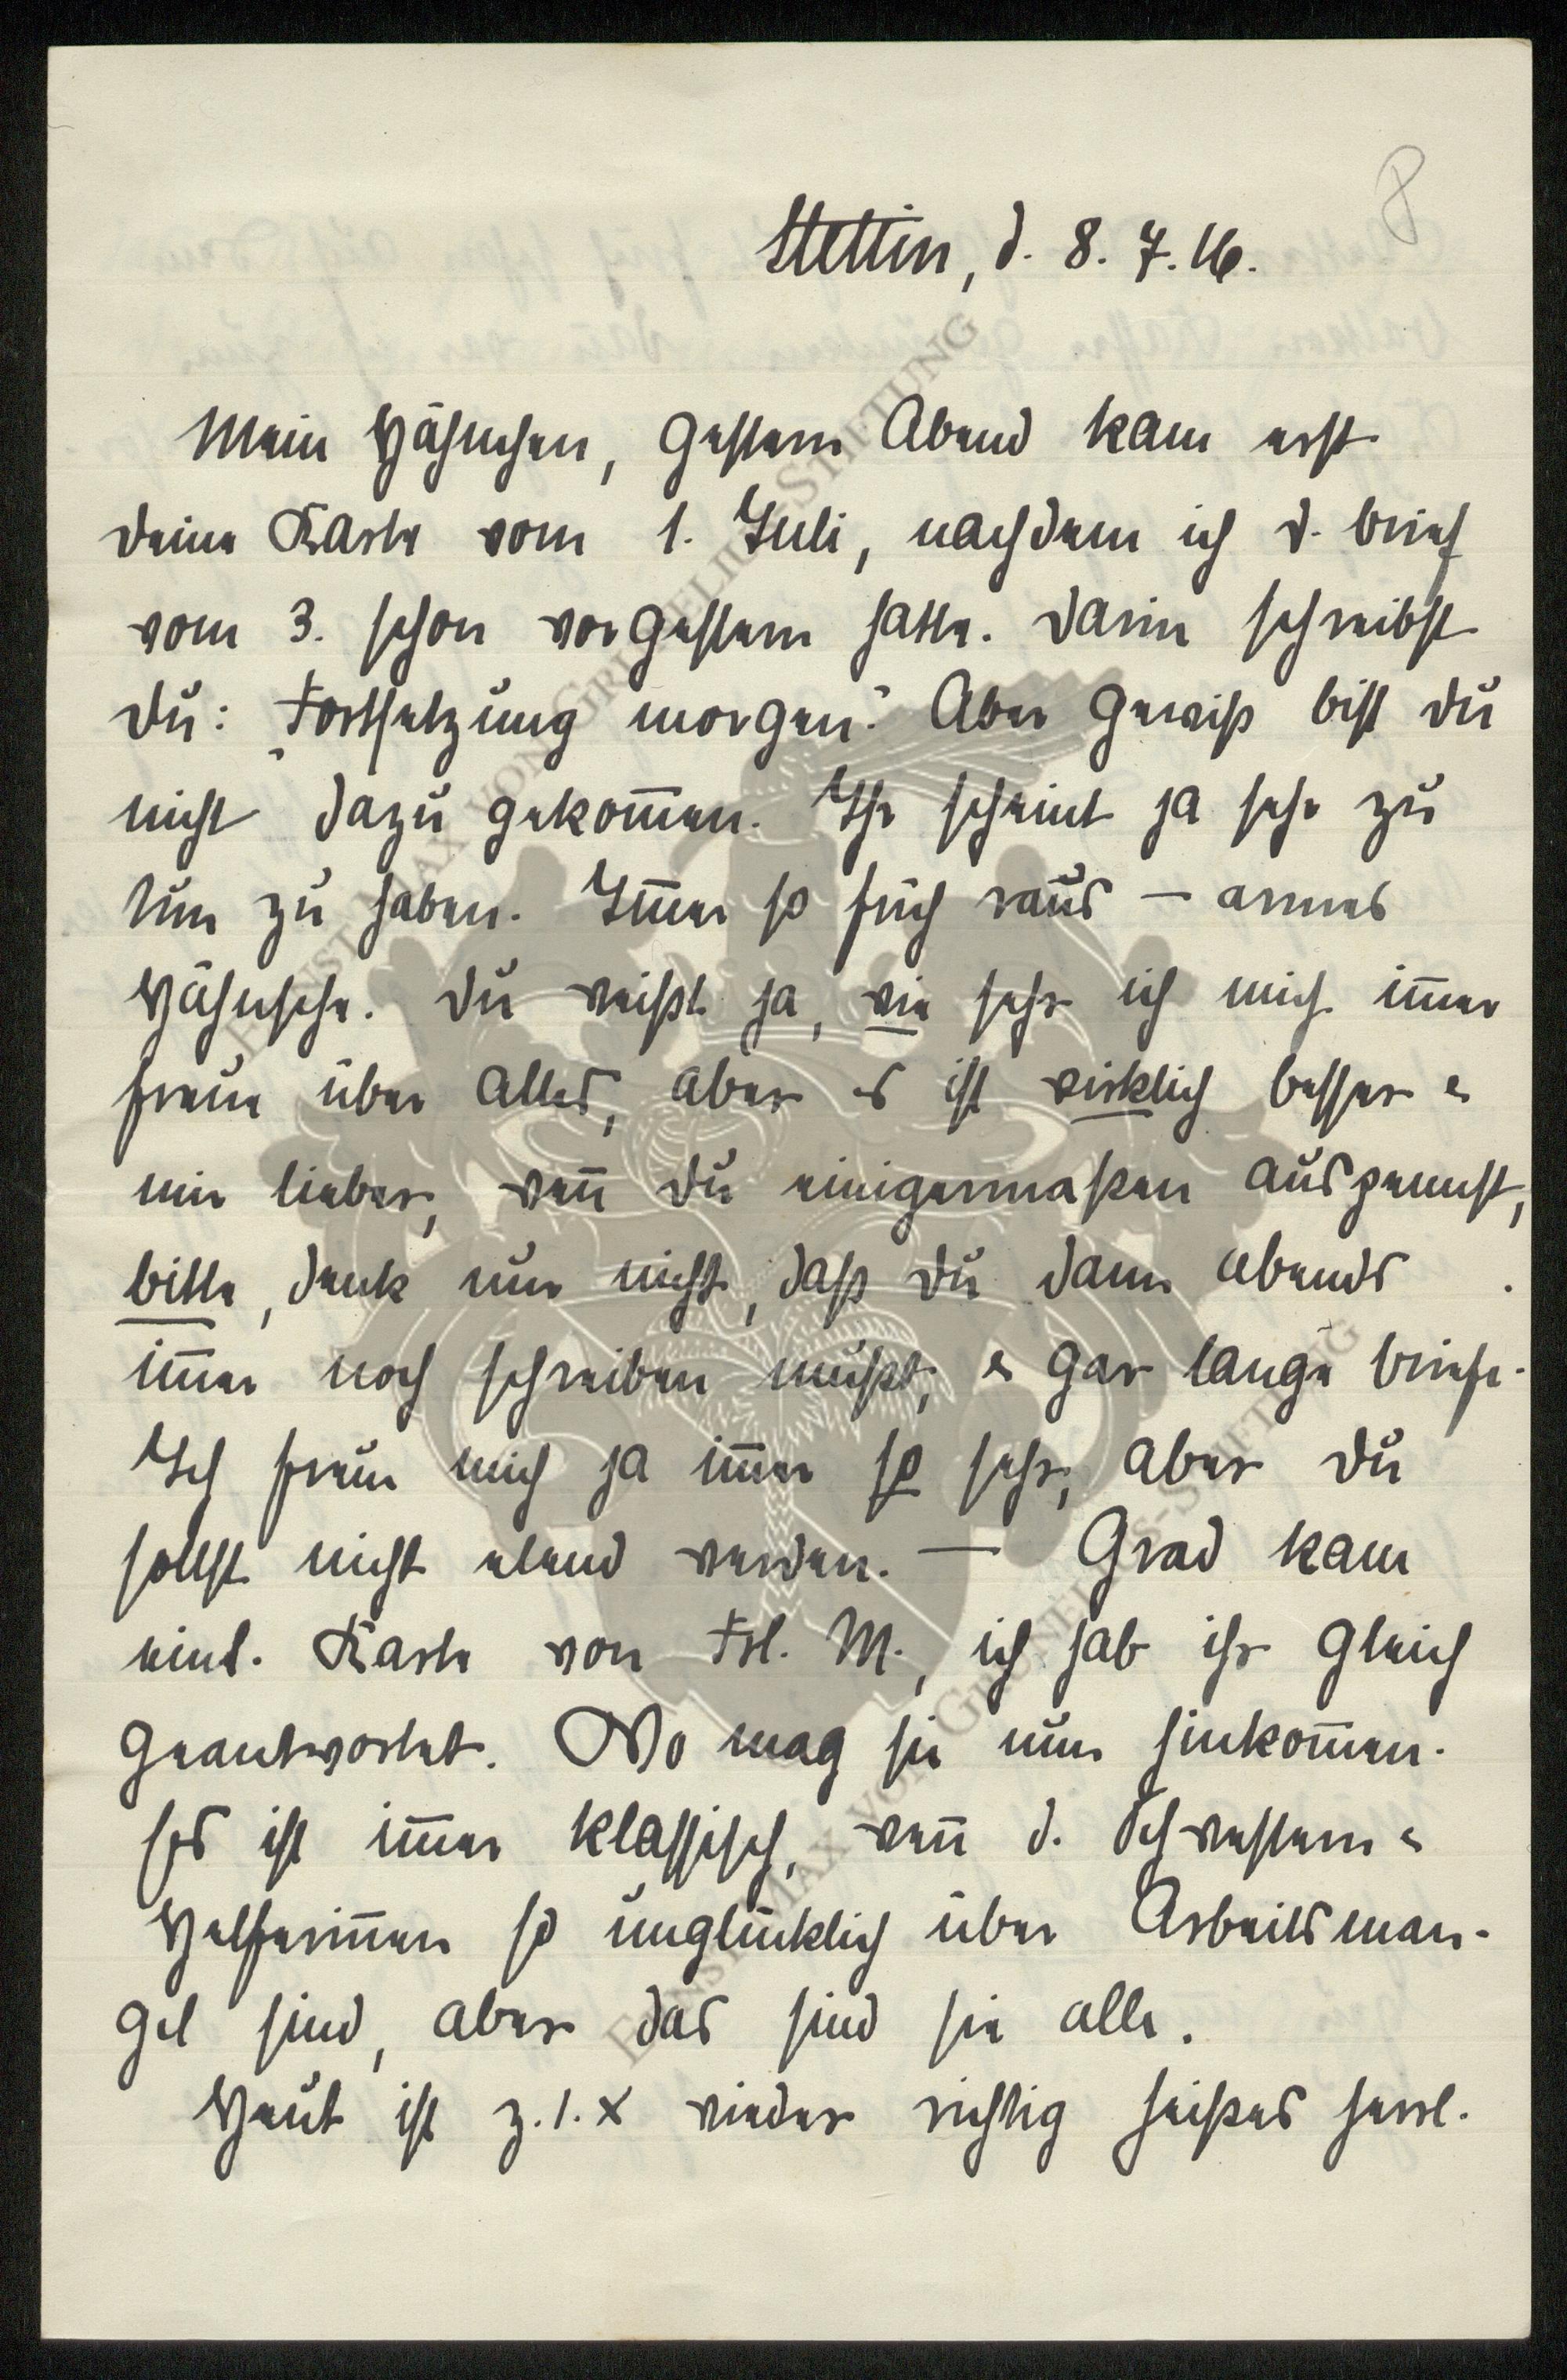 8
Stettin, d. 8. 7. 16.
Mein Hähnchen, gestern Abend kam erst
deine Karte vom 1. Juli, nachdem ich d. Brief
vom 3. schon vorgestern hatte. Darin schreibst
du: „Fortsetzung morgen." Aber gewiß bist du
nicht dazu gekom̅en. Ihr scheint ja sehr zu
tun zu haben. Im̅er so früh raus – armes
Hähnche. Du weißt ja, wie sehr ich mich im̅er
freue über Alles, aber es ist wirklich besser &
mir lieber, wen̅ du einigermaßen auspennst,
bitte, denk nur nicht, daß du dann abends
im̅er noch schreiben mußt, & gar lange Briefe.
Ich freue mich ja im̅er so sehr, aber du
sollst nicht elend werden. — Grad kam
eine Karte von Frl. M., ich hab ihr gleich
geantwortet. Wo mag sie nun hinkom̅en.
Es ist im̅er klassisch, wen̅ d. Schwestern &
Helferin̅en so unglücklich über Arbeitsman-
gel sind, aber das sind sie alle.
Heut ist z. 1. x wieder richtig heißes herrl.
ERNST MAX VON GRUNELIUS-STIFTUNG
ERNST MAX VON GRUNELIUS-STIFTUNG